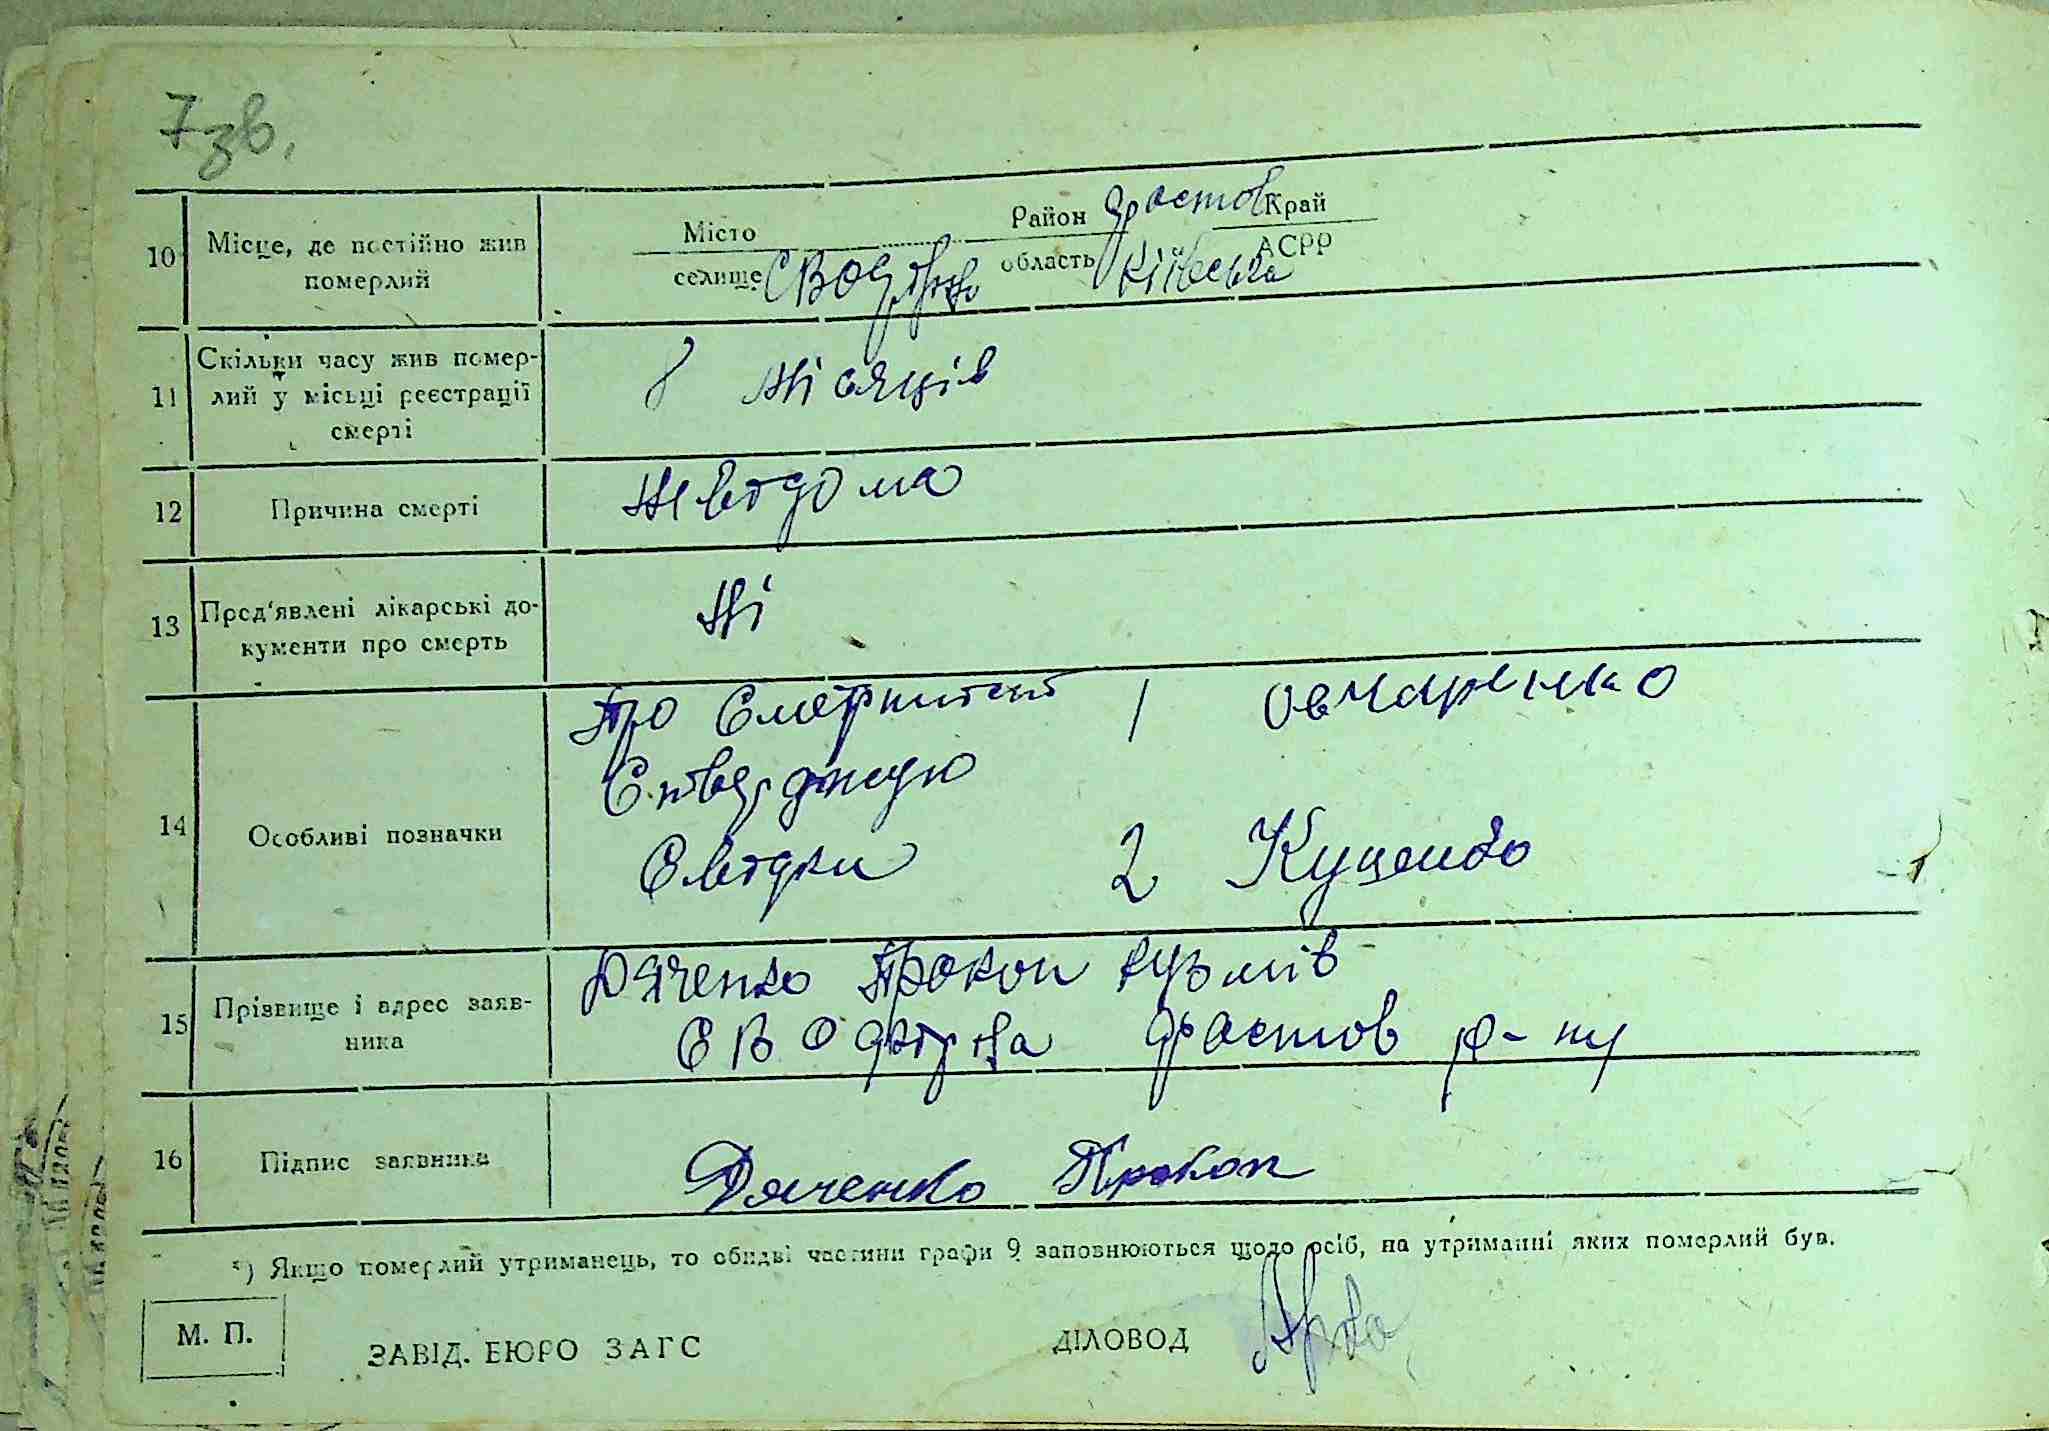 7 зв.
10 Місце, де постійно жив померлий
Місто
селище
Район Фастов Край
область Київська АСРР
11 Скільки часу жив помер-
лий у місьці реєстрації
смерті
8 місяців
12 Причина смерті
невідома
13 Пред'явлені лікарські до-
кументи про смерть
Ні
14 Особливі позначки
Про 1 Овчаренко
Свідки 2 Куценко
15 Прізвище і адрес заяв-
ника
Дяченко Прокоп Кузмів
Фастов р-ну
16 Підпис заявника
Дяченко Прокоп
*) Якщо померлий утриманець, то обидві частини графи 9 заповнюються щодо осіб, на утриманні яких померлий був.
М. П.
ЗАВІД. БЮРО ЗАГС
ДІЛОВОД